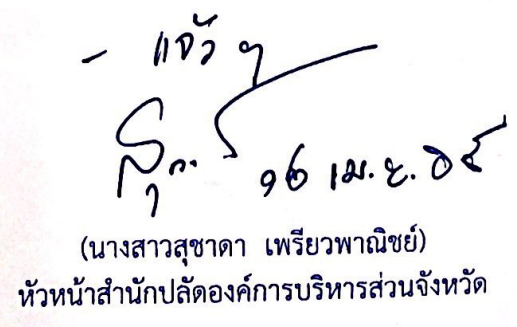 - แจ้ง ๆ
๑๖ เม.ย. ๖๕
(นางสาวสุชาดา เพรียวพาณิชย์)
หัวหน้าสำนักปลัดองค์การบริหารส่วนจังหวัด